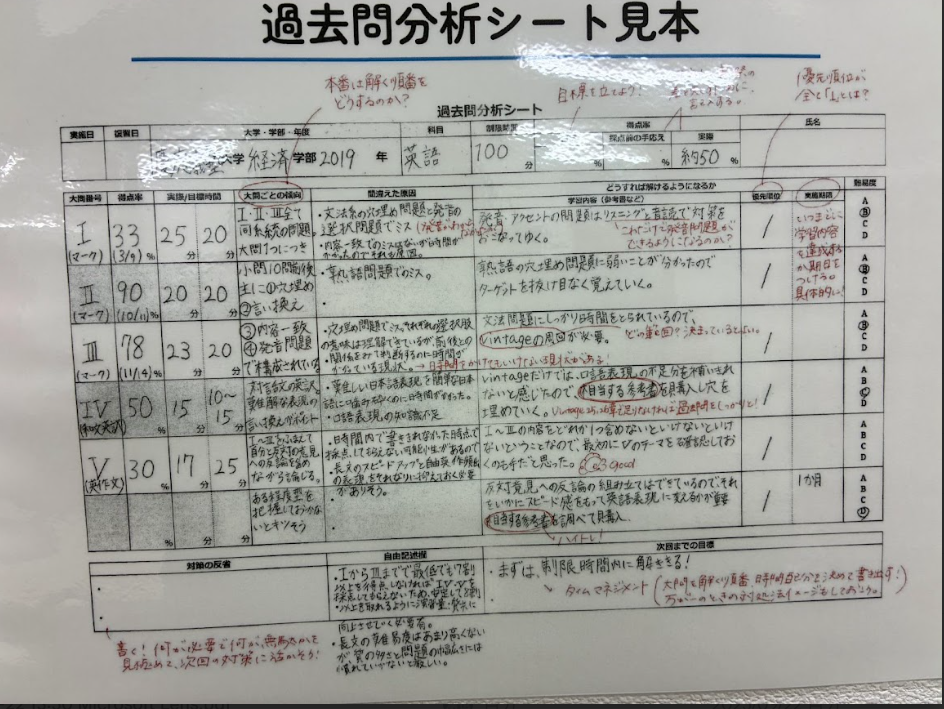 過去問分析シート見本
本番は解く順番を
どうするのか?
目標を立てよう!
優先順位が
全て「1」とは?
過去問分析シート
実施日 復習日 大学・学部・年度 科目 制限時間 得点率 氏名
採点前の手応え 実際
大学 経済 学部 2019 年 英語 100 分 % % 約50 %
大問番号 得点率 実際/目標時間 大問ごとの傾向 間違えた原因 どうすれば解けるようになるか 難易度
学習内容(参考書など) 優先順位 実施期限
I
(マーク)
33
(3/9) %
25 分
20 分
I・II・III全て
同系統の問題
大問1つにつき
・文法系の穴埋め問題と発音の
選択問題でミス
発音、アクセントの問題はリスニングと音読で対策を
おこなってゆく。
これだけで発音問題が
できるようになるのか?
1
いつまでに
学習内容
を達成する
か期日を
つけよう。
具体的に!
A B C D
II
(マーク)
90
(10/11) %
20 分
20 分
小問10問前後
主に①穴埋め
②言い換え
・熟語問題でのミス。
熟語の穴埋め問題に弱いことが分かったので
ターゲットを抜け目なく覚えていく。
1
A B C D
III
(マーク)
78
(11/14) %
23 分
20 分
③内容一致
④発音問題
で構成されている
・穴埋め問題でミス。それぞれの選択肢
の意味は理解できているが前後との
関係をみて判断するのに時間が
かかっている現状。
文法問題にしっかり時間をとられているので、
Vintageの周回が必要。
どの範囲?決まっているとよい。
1
A B C D
IV
(和文英訳)
50 %
15 分
10〜15 分
対話文の英訳
難解な表現の
言い換えがポイント
・難しい日本語表現を簡単な日本
語にかみくだくのに時間がかかった。
・口語表現の知識不足
Vintageだけでは、口語表現の不足分を補いきれ
ないと感じたので、相当する参考書を購入し穴を
埋めていく。
1
A B C D
V
(英作文)
30 %
17 分
25 分
I〜IIIをふまえて
自分と反対の意見
への反論を含め
ながら論じる。
・時間内で書ききれなかった時点で
採点してもらえない可能性があるので
・長文のスピードアップと自由英作頻出
の表現をそれなりに抑えておく必要
がありそう。
I〜IIIの内容をどれか1つ含めないといけないといけ
ないということなので、最初にVのテーマを確認してお
くのも手だと思った。
good
1
A B C D
ある程度型を
把握しておかな
いとキツそう
反対意見への反論の組み立てはできているのでそれ
をいかにスピード感をもって英語表現に変えるかが重要
相当する参考書を調べて購入
ハイトレ!
1
1か月
A B C D
対策の反省 自由記述欄 次回までの目標
・IからIIIまでで最低でも7割
以上を得点しなければIV・Vを
採点してもらえないため、安定して7割
以上を取れるように演習量・質共に
向上させていく必要有。
・長文の難易度はあまり高くない
が質の多さと問題の幅広さには
慣れていかないと厳しい。
・まずは、制限時間内に解ききる!
タイムマネジメント(大問を解く順番、時間配分を決めて書き出す!
万が一のときの対処法もイメージもしてみよう。)
書く!何が必要で何が無駄かを
見極めて、次回の対策に活かそう!